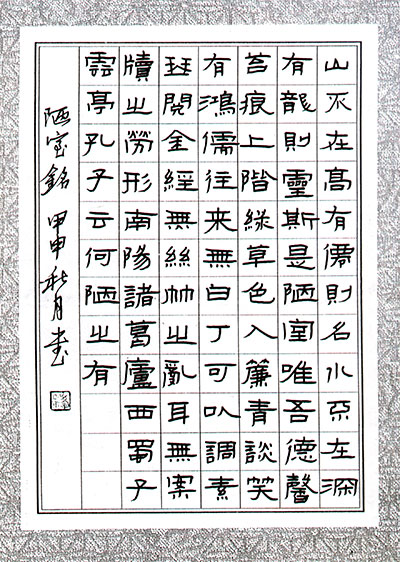 山不在高有僊則名水不在深
有龍則靈斯是陋室唯吾德馨
苔痕上階綠草色入簾青談笑
有鴻儒往来無白丁可以調素
琴閱金經無絲竹之亂耳無案
牘之勞形南陽諸葛廬西蜀子
雲亭孔子云何陋之有
陋室銘 甲申秋月書